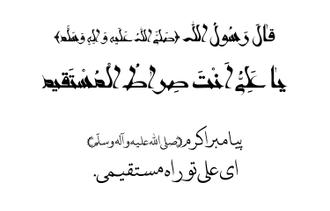 قالَ رَسُولُ اللهِ ﴿صَلَّى اللهُ عَلَيهِ وَ الِهِ وَسَلَّم﴾
يا عَلِيُّ اَنْتَ صِراطُ الْمُسْتَقيم
پیامبر اکرم (صلی الله علیه و آله و سلّم)
ای علی تو راه مستقیمی.